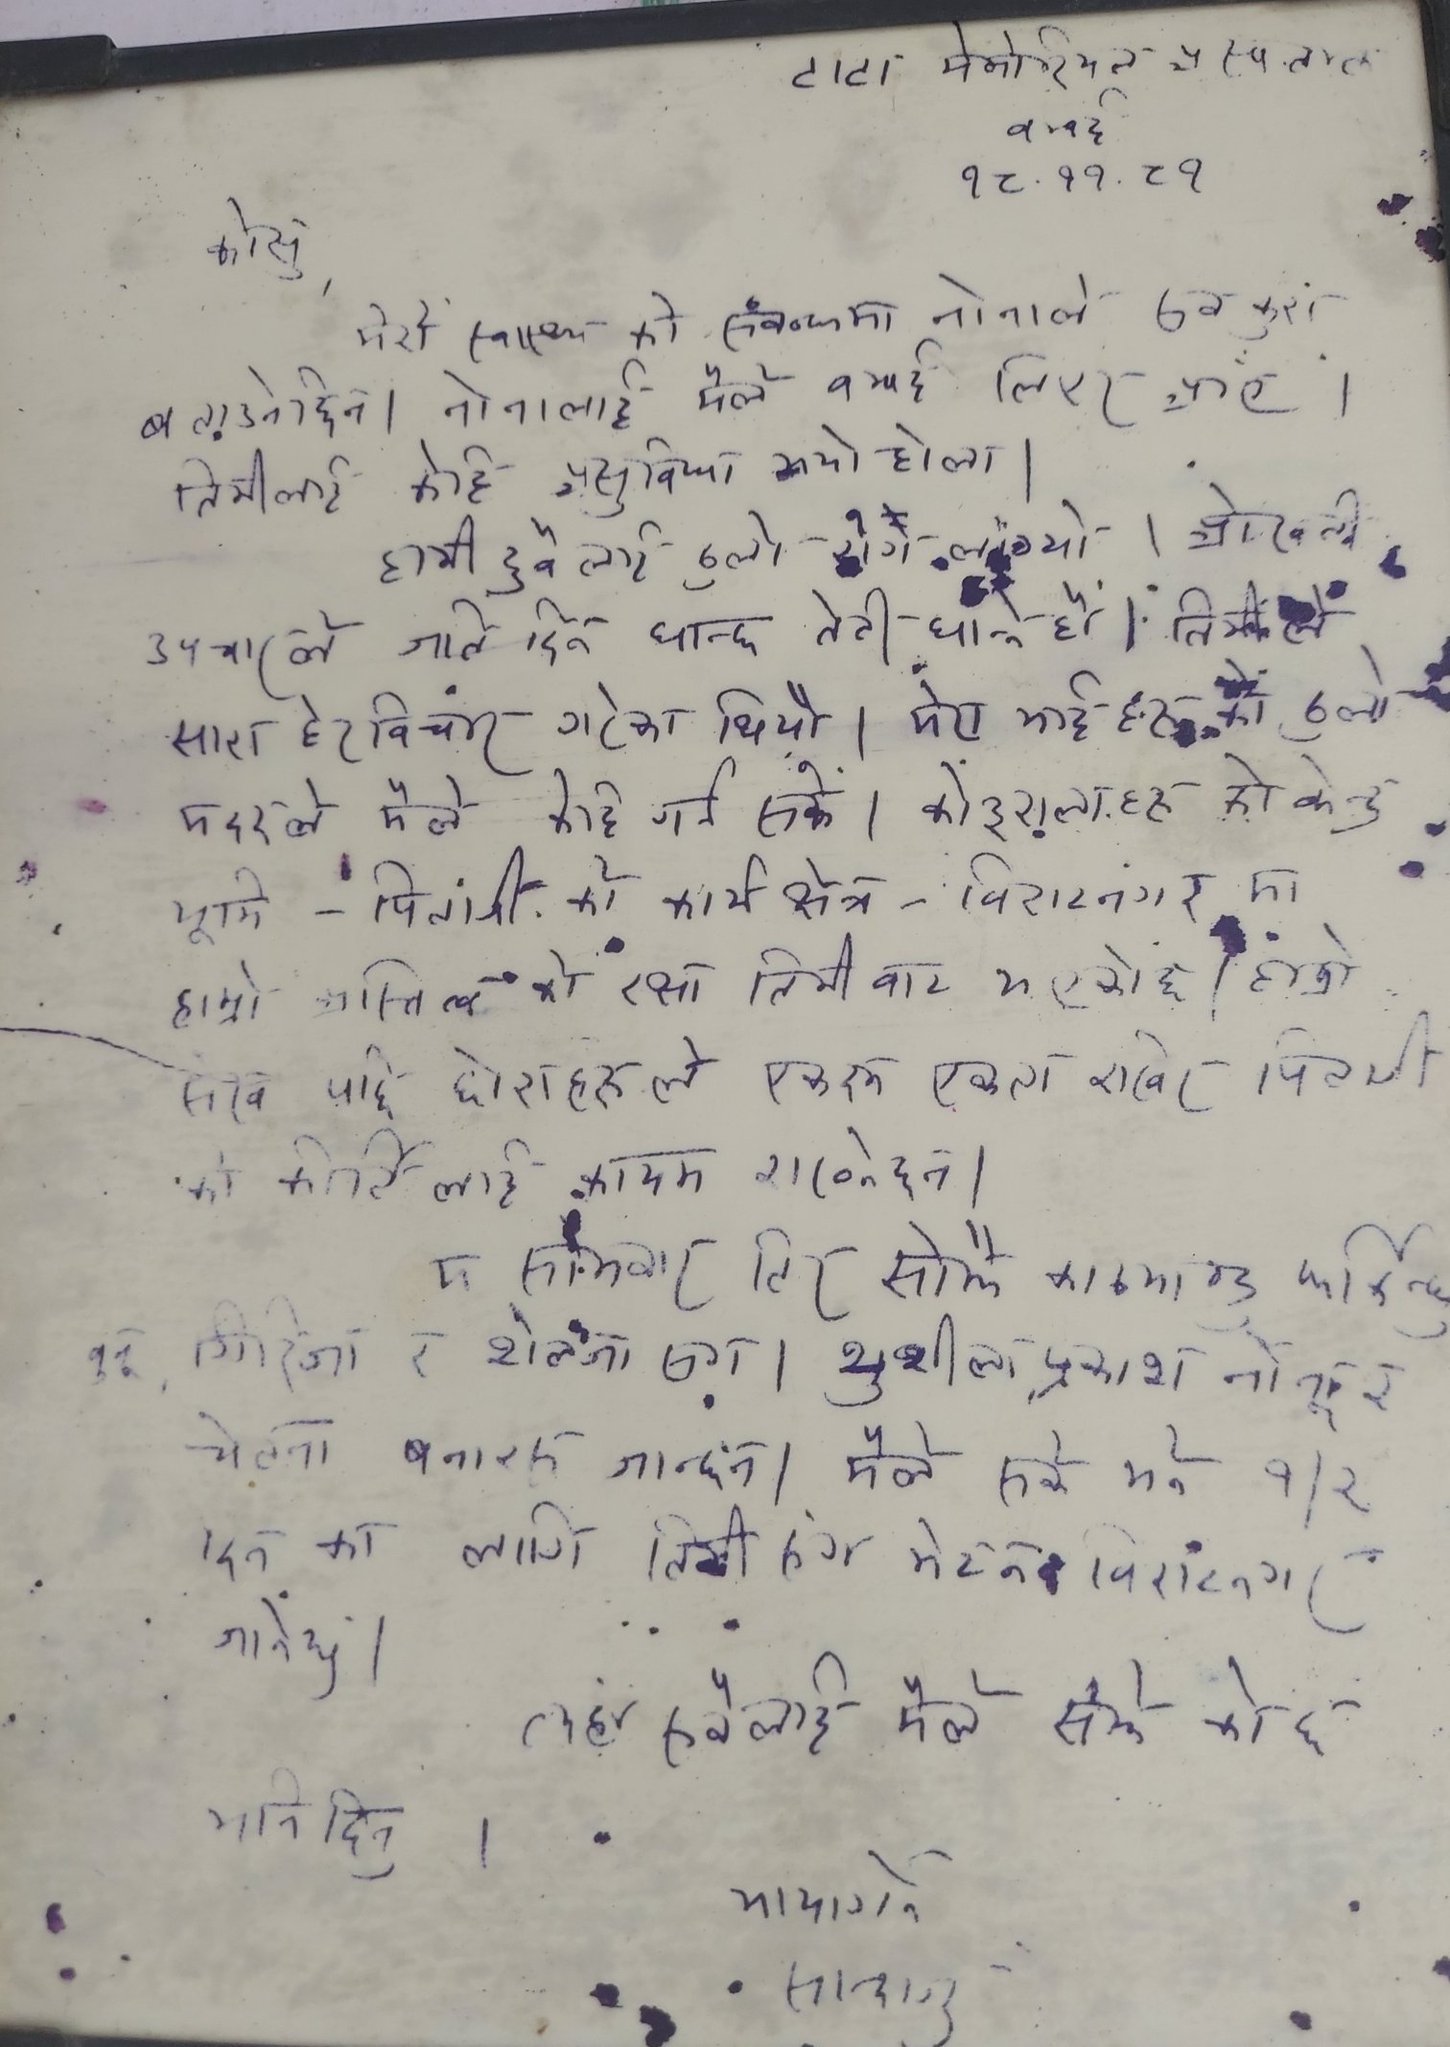 टाटा मेमोरियल अस्पताल
बम्बई
१८.११.८१
कोसु,
मेरो स्वास्थ्य को संबन्धमा नोनाले सब कुरा
बताउनेछिन। नोनालाई मैले बम्बई लिएर आएँ।
तिमीलाई केहि असुविधा भयो होला।
हामी दुवैलाई ठुलो रोग लाग्यो। ओखती
उपचारले जति दिन धान्छ तेती धान्ने हो। तिमीले
सारा हेरविचार गरेका थियौ। मेरा भाईहरुको ठुलो
मददले मैले केहि गर्न सकें। कोइरालाहरु को केन्द्र
भूमि - पिताजी को कार्य क्षेत्र - विराटनगर मा
हाम्रो अस्तित्व को रक्षा तिमीबाट भएकोछ। हाम्रो
सेख पछि छोराहरुले एकदम एकता राखेर पिताजी
को कीर्तिलाई कायम राख्नेछन।
म सोमबार तिर सोझै काठमाण्डु फर्किन्छु
गिरिजा र शैलजा संग। सुशीला, प्रकाश नोना र
चेतना बनारस जान्छन। मैले सके भने १/२
दिन का लागि तिमी संग भेटन विराटनगर
जानेछु।
त्यहां सबैलाई मैले सम्झे को छु
भनिदिनु।
मायागर्ने
सान्दाजु